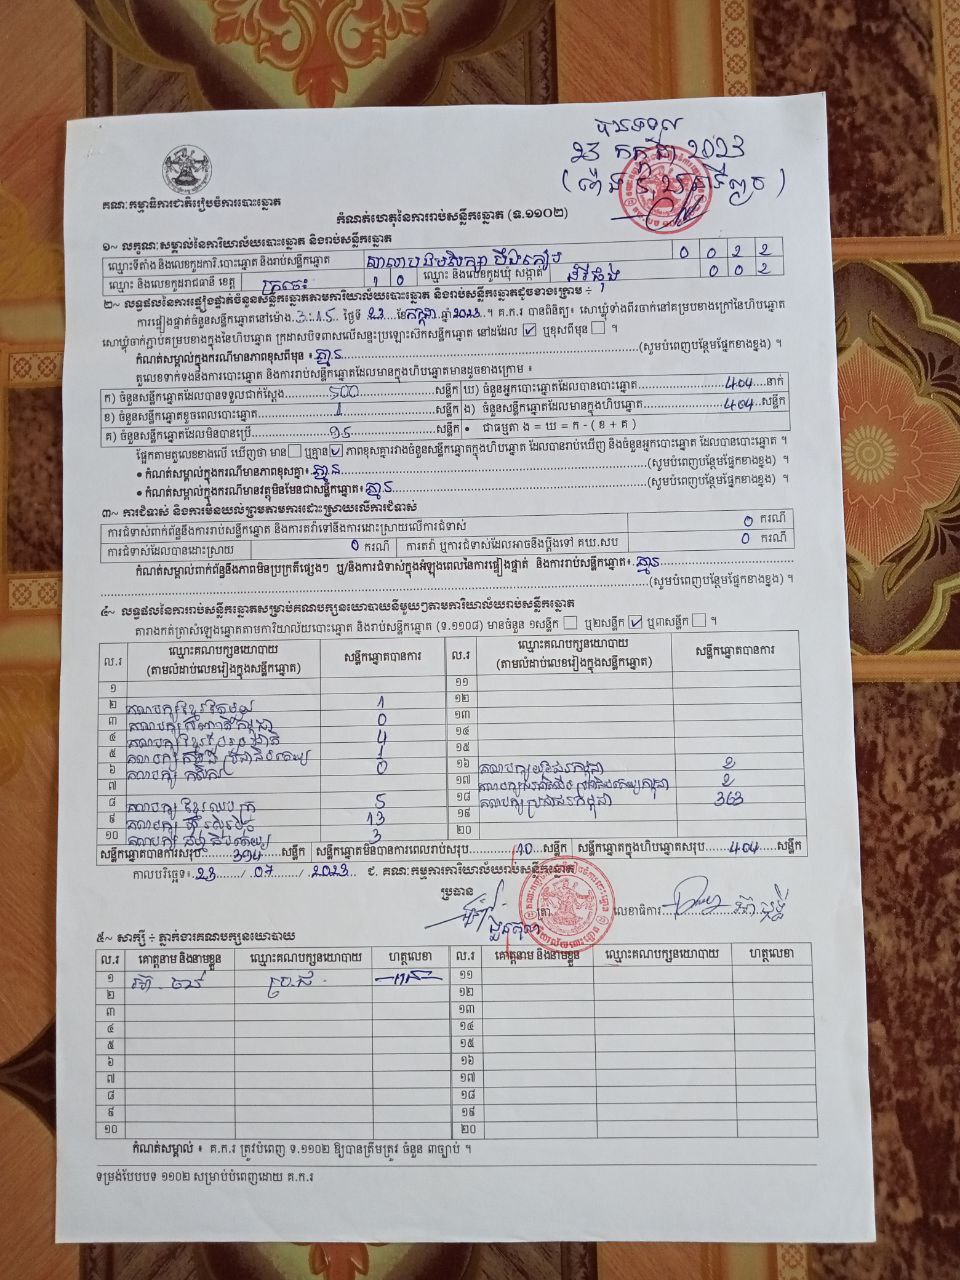 បានទទួល
23 កក្កដា 2023
គណៈកម្មាធិការជាតិរៀបចំការបោះឆ្នោត
កំណត់ហេតុនៃការរាប់សន្លឹកឆ្នោត (ទ.១១០២)
១~ លក្ខណៈសម្គាល់នៃការិយាល័យបោះឆ្នោត និងរាប់សន្លឹកឆ្នោត
ឈ្មោះទីតាំង និងលេខកូដការិ.បោះឆ្នោត និងរាប់សន្លឹកឆ្នោត សាលាបឋមសិក្សា បឹងកៀប 0 0 2 2
ឈ្មោះ និងលេខកូដរាជធានី ខេត្ត ក្រចេះ 1 0 ឈ្មោះ និងលេខកូដឃុំ សង្កាត់ 0 0 2
២~ លទ្ធផលនៃការផ្ទៀងផ្ទាត់ចំនួនសន្លឹកឆ្នោតតាមការិយាល័យបោះឆ្នោត និងរាប់សន្លឹកឆ្នោតដូចខាងក្រោម ÷
ការផ្ទៀងផ្ទាត់ចំនួនសន្លឹកឆ្នោតនៅម៉ោង 3:15 ថ្ងៃទី 23 ខែ កក្កដា ឆ្នាំ 2023 ។ គ.ក.រ បានពិនិត្យ៖ សោឃ្លុំទាំងពីរចាក់នៅគម្របខាងក្រៅនៃហិបឆ្នោត
សោឃ្លុំចាក់ភ្ជាប់គម្របខាងក្នុងនៃហិបឆ្នោត ក្រដាសបិទពាសលើសន្ទះប្រឡោះសិកសន្លឹកឆ្នោត នៅដដែល ☑ ឬខុសពីមុន ☐ ។
កំណត់សម្គាល់ក្នុងករណីមានភាពខុសពីមុន ៖ គ្មាន (សូមបំពេញបន្ថែមផ្នែកខាងខ្នង) ។
តួលេខទាក់ទងនឹងការបោះឆ្នោត និងការរាប់សន្លឹកឆ្នោតដែលមានក្នុងហិបឆ្នោតមានដូចខាងក្រោម ៖
ក) ចំនួនសន្លឹកឆ្នោតដែលបានទទួលជាក់ស្តែង 500 សន្លឹក ឃ) ចំនួនអ្នកបោះឆ្នោតដែលបានបោះឆ្នោត 404 នាក់
ខ) ចំនួនសន្លឹកឆ្នោតខូចពេលបោះឆ្នោត 1 សន្លឹក ង) ចំនួនសន្លឹកឆ្នោតដែលមានក្នុងហិបឆ្នោត 404 សន្លឹក
គ) ចំនួនសន្លឹកឆ្នោតដែលមិនបានប្រើ 95 សន្លឹក • ជាធម្មតា ង = ឃ = ក - ( ខ + គ )
ផ្អែកតាមតួលេខខាងលើ ឃើញថា មាន ☐ ឬគ្មាន ☑ ភាពខុសគ្នារវាងចំនួនសន្លឹកឆ្នោតក្នុងហិបឆ្នោត ដែលបានរាប់ឃើញ និងចំនួនអ្នកបោះឆ្នោត ដែលបានបោះឆ្នោត ។
• កំណត់សម្គាល់ក្នុងករណីមានភាពខុសគ្នា៖ គ្មាន (សូមបំពេញបន្ថែមផ្នែកខាងខ្នង) ។
• កំណត់សម្គាល់ក្នុងករណីមានវត្ថុមិនមែនជាសន្លឹកឆ្នោត៖ គ្មាន (សូមបំពេញបន្ថែមផ្នែកខាងខ្នង) ។
៣~ ការជំទាស់ និងការមិនយល់ព្រមតាមការដោះស្រាយលើការជំទាស់
ការជំទាស់ពាក់ព័ន្ធនឹងការរាប់សន្លឹកឆ្នោត និងការតវ៉ាទៅនឹងការដោះស្រាយលើការជំទាស់ 0 ករណី
ការជំទាស់ដែលបានដោះស្រាយ 0 ករណី ការតវ៉ា ឬការជំទាស់ដែលអាចនឹងប្តឹងទៅ គឃ.សប 0 ករណី
កំណត់សម្គាល់ពាក់ព័ន្ធនឹងភាពមិនប្រក្រតីផ្សេងៗ ឬ/និងការជំទាស់ក្នុងអំឡុងពេលនៃការផ្ទៀងផ្ទាត់ និងការរាប់សន្លឹកឆ្នោត៖ គ្មាន
(សូមបំពេញបន្ថែមផ្នែកខាងខ្នង) ។
៤~ លទ្ធផលនៃការរាប់សន្លឹកឆ្នោតសម្រាប់គណបក្សនយោបាយនីមួយៗតាមការិយាល័យរាប់សន្លឹកឆ្នោត
តារាងកត់ត្រាសំឡេងឆ្នោតតាមការិយាល័យបោះឆ្នោត និងរាប់សន្លឹកឆ្នោត (ទ.១១០៨) មានចំនួន ១សន្លឹក ☐ ឬ២សន្លឹក ☑ ឬ៣សន្លឹក ☐ ។
ល.រ ឈ្មោះគណបក្សនយោបាយ (តាមលំដាប់លេខរៀងក្នុងសន្លឹកឆ្នោត) សន្លឹកឆ្នោតបានការ ល.រ ឈ្មោះគណបក្សនយោបាយ (តាមលំដាប់លេខរៀងក្នុងសន្លឹកឆ្នោត) សន្លឹកឆ្នោតបានការ
១ ១១
២ គណបក្សខ្មែរតែមួយ 1 ១២
៣ គណបក្ស កម្ពុជា 0 ១៣
៤ គណបក្សខ្មែរ ជាតិ 4 ១៤
៥ គណបក្ស ប្រជាធិបតេយ្យ 1 ១៥
៦ គណបក្ស កសិករ 0 ១៦ គណបក្សយុវជនកម្ពុជា 2
៧ ១៧ 2
៨ គណបក្សខ្មែរឈប់ក្រ 5 ១៨ គណបក្សប្រជាជនកម្ពុជា 363
៩ គណបក្ស ហ្វ៊ុនស៊ិនប៉ិច 13 ១៩
១០ គណបក្ស 3 ២០
សន្លឹកឆ្នោតបានការសរុប 394 សន្លឹក សន្លឹកឆ្នោតមិនបានការពេលរាប់សរុប 10 សន្លឹក សន្លឹកឆ្នោតក្នុងហិបឆ្នោតសរុប 404 សន្លឹក
កាលបរិច្ឆេទ៖ 23 / 07 / 2023 ជ. គណៈកម្មការការិយាល័យរាប់សន្លឹកឆ្នោត
ប្រធាន
ត្រា លេខាធិការ
៥~ សាក្សី ÷ ភ្នាក់ងារគណបក្សនយោបាយ
ល.រ គោត្តនាម និងនាមខ្លួន ឈ្មោះគណបក្សនយោបាយ ហត្ថលេខា ល.រ គោត្តនាម និងនាមខ្លួន ឈ្មោះគណបក្សនយោបាយ ហត្ថលេខា
១ ប្រ.ជ ១១
២ ១២
៣ ១៣
៤ ១៤
៥ ១៥
៦ ១៦
៧ ១៧
៨ ១៨
៩ ១៩
១០ ២០
កំណត់សម្គាល់ ៖ គ.ក.រ ត្រូវបំពេញ ទ.១១០២ ឱ្យបានត្រឹមត្រូវ ចំនួន ៣ច្បាប់ ។
ទម្រង់បែបបទ ១១០២ សម្រាប់បំពេញដោយ គ.ក.រ